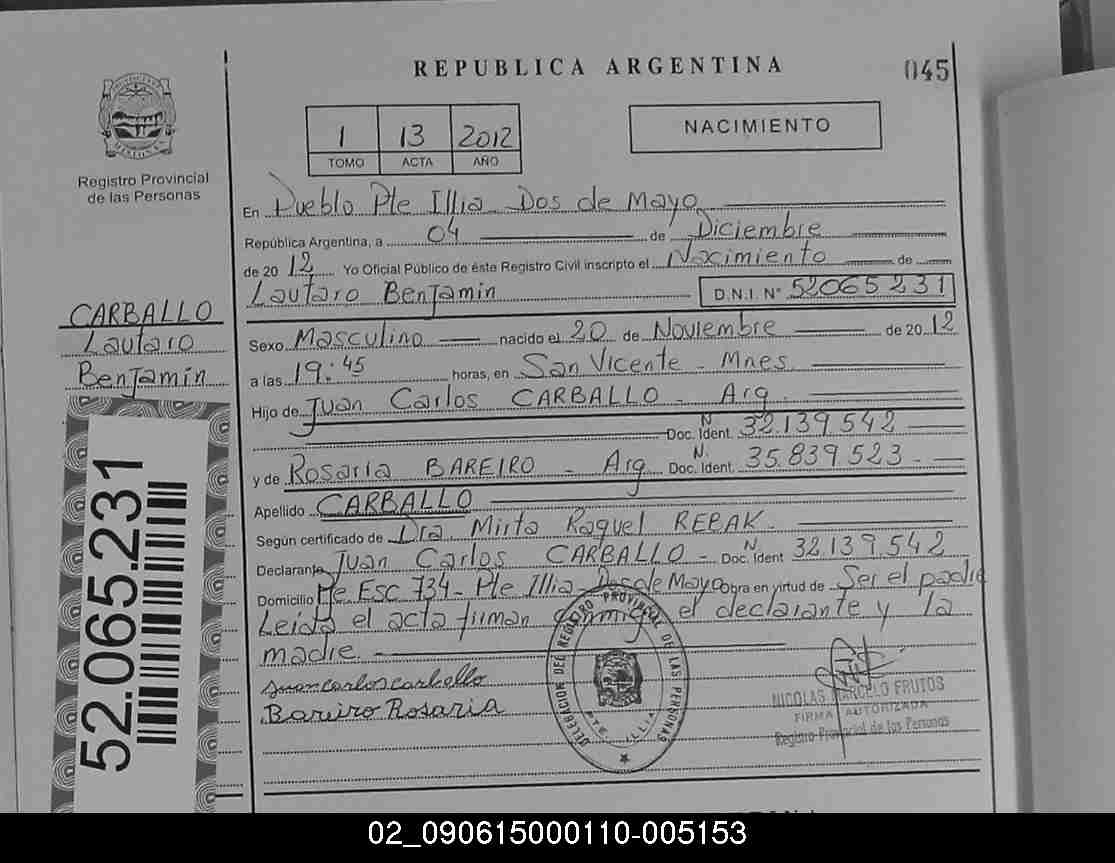 REPUBLICA ARGENTINA
045
1 13 2012
TOMO ACTA AÑO
NACIMIENTO
Registro Provincial
de las Personas
En Pueblo Pte Illia Dos de Mayo
República Argentina, a 04 de Diciembre
de 2012 Yo Oficial Público de éste Registro Civil inscripto el Nacimiento de
Lautaro Benjamin D.N.I. N° 52065231
CARBALLO
Lautaro
Benjamín
Sexo Masculino nacido el 20 de Noviembre de 2012
a las 19:45 horas, en San Vicente - Mnes.
Hijo de Juan Carlos CARBALLO - Arg.
Doc. Ident. N. 32.139.542
y de Rosaria BAREIRO - Arg Doc. Ident. N. 35.839.523.-
Apellido CARBALLO
Según certificado de Dra Mirta Raquel REPAK.
Declarante Juan Carlos CARBALLO - Doc. Ident N. 32.139.542
Domicilio Pje Esc 734- Pte Illia Dos de Mayo obra en virtud de Ser el padre
Leída el acta firman conmigo el declarante y la
madre.
Juan carlos carballo
Bareiro Rosaria
52.065.231
DELEGACION DEL REGISTRO PROVINCIAL DE LAS PERSONAS
PTE. ILLIA
NICOLAS MARCELO FRUTOS
FIRMA AUTORIZADA
Registro Provincial de las Personas
02_090615000110-005153